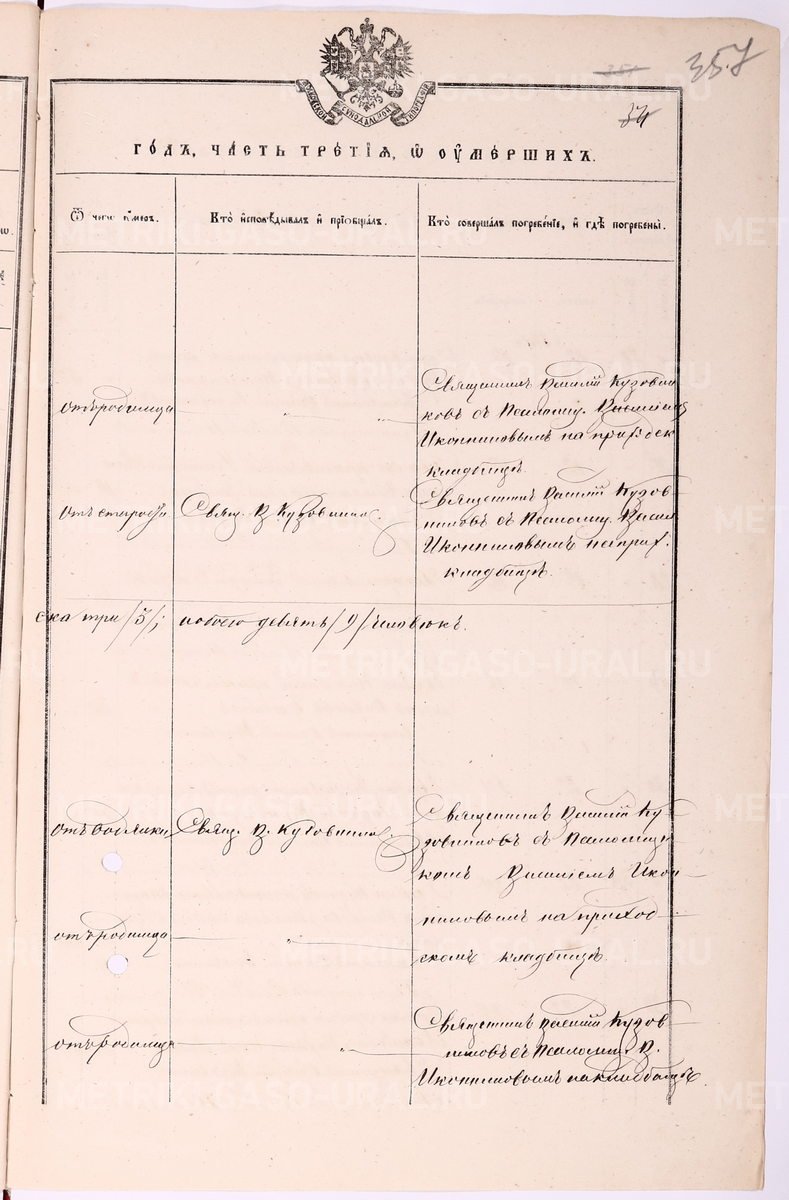 357
34
МОСКОВСКОЙ СѴНОДАЛЬНОЙ ТИПОГРАФІИ
ГО́ДЪ, ЧА́СТЬ ТРЕ́ТІѦ, Ѡ ОУМЕ́РШИХЪ.
Ѿ чегѡ оумеръ.
Кто̀ и҆сповѣ́дывалъ и҆ прїѡбща́лъ.
Кто̀ соверша́лъ погребе́нїе, и҆ гдѣ̀ погребены̀.
отъ родимца
Священникъ Василій Кузовни-
ковъ съ Псаломщ. Василіемъ
Иконниковымъ на приходск
кладбищѣ.
отъ старости
Свящ. В Кузовников.
Священникъ Василій Кузов-
никовъ съ Псаломщ. Васил
Иконниковымъ на прих.
кладбищѣ.
ска три /3/;
обоего девять /9/ человѣкъ.
Свящ. В. Кузовников.
Священникъ Василій Ку-
зовниковъ съ Псаломщи-
комъ Василіемъ Икон-
отъ родимца
никовымъ на приход-
скомъ кладбищѣ.
отъ родимца
Священникъ Василій Кузов-
никовъ съ Псаломщ. В.
Иконниковымъ на кладбищѣ.
METRIKI.GASO-URAL.RU